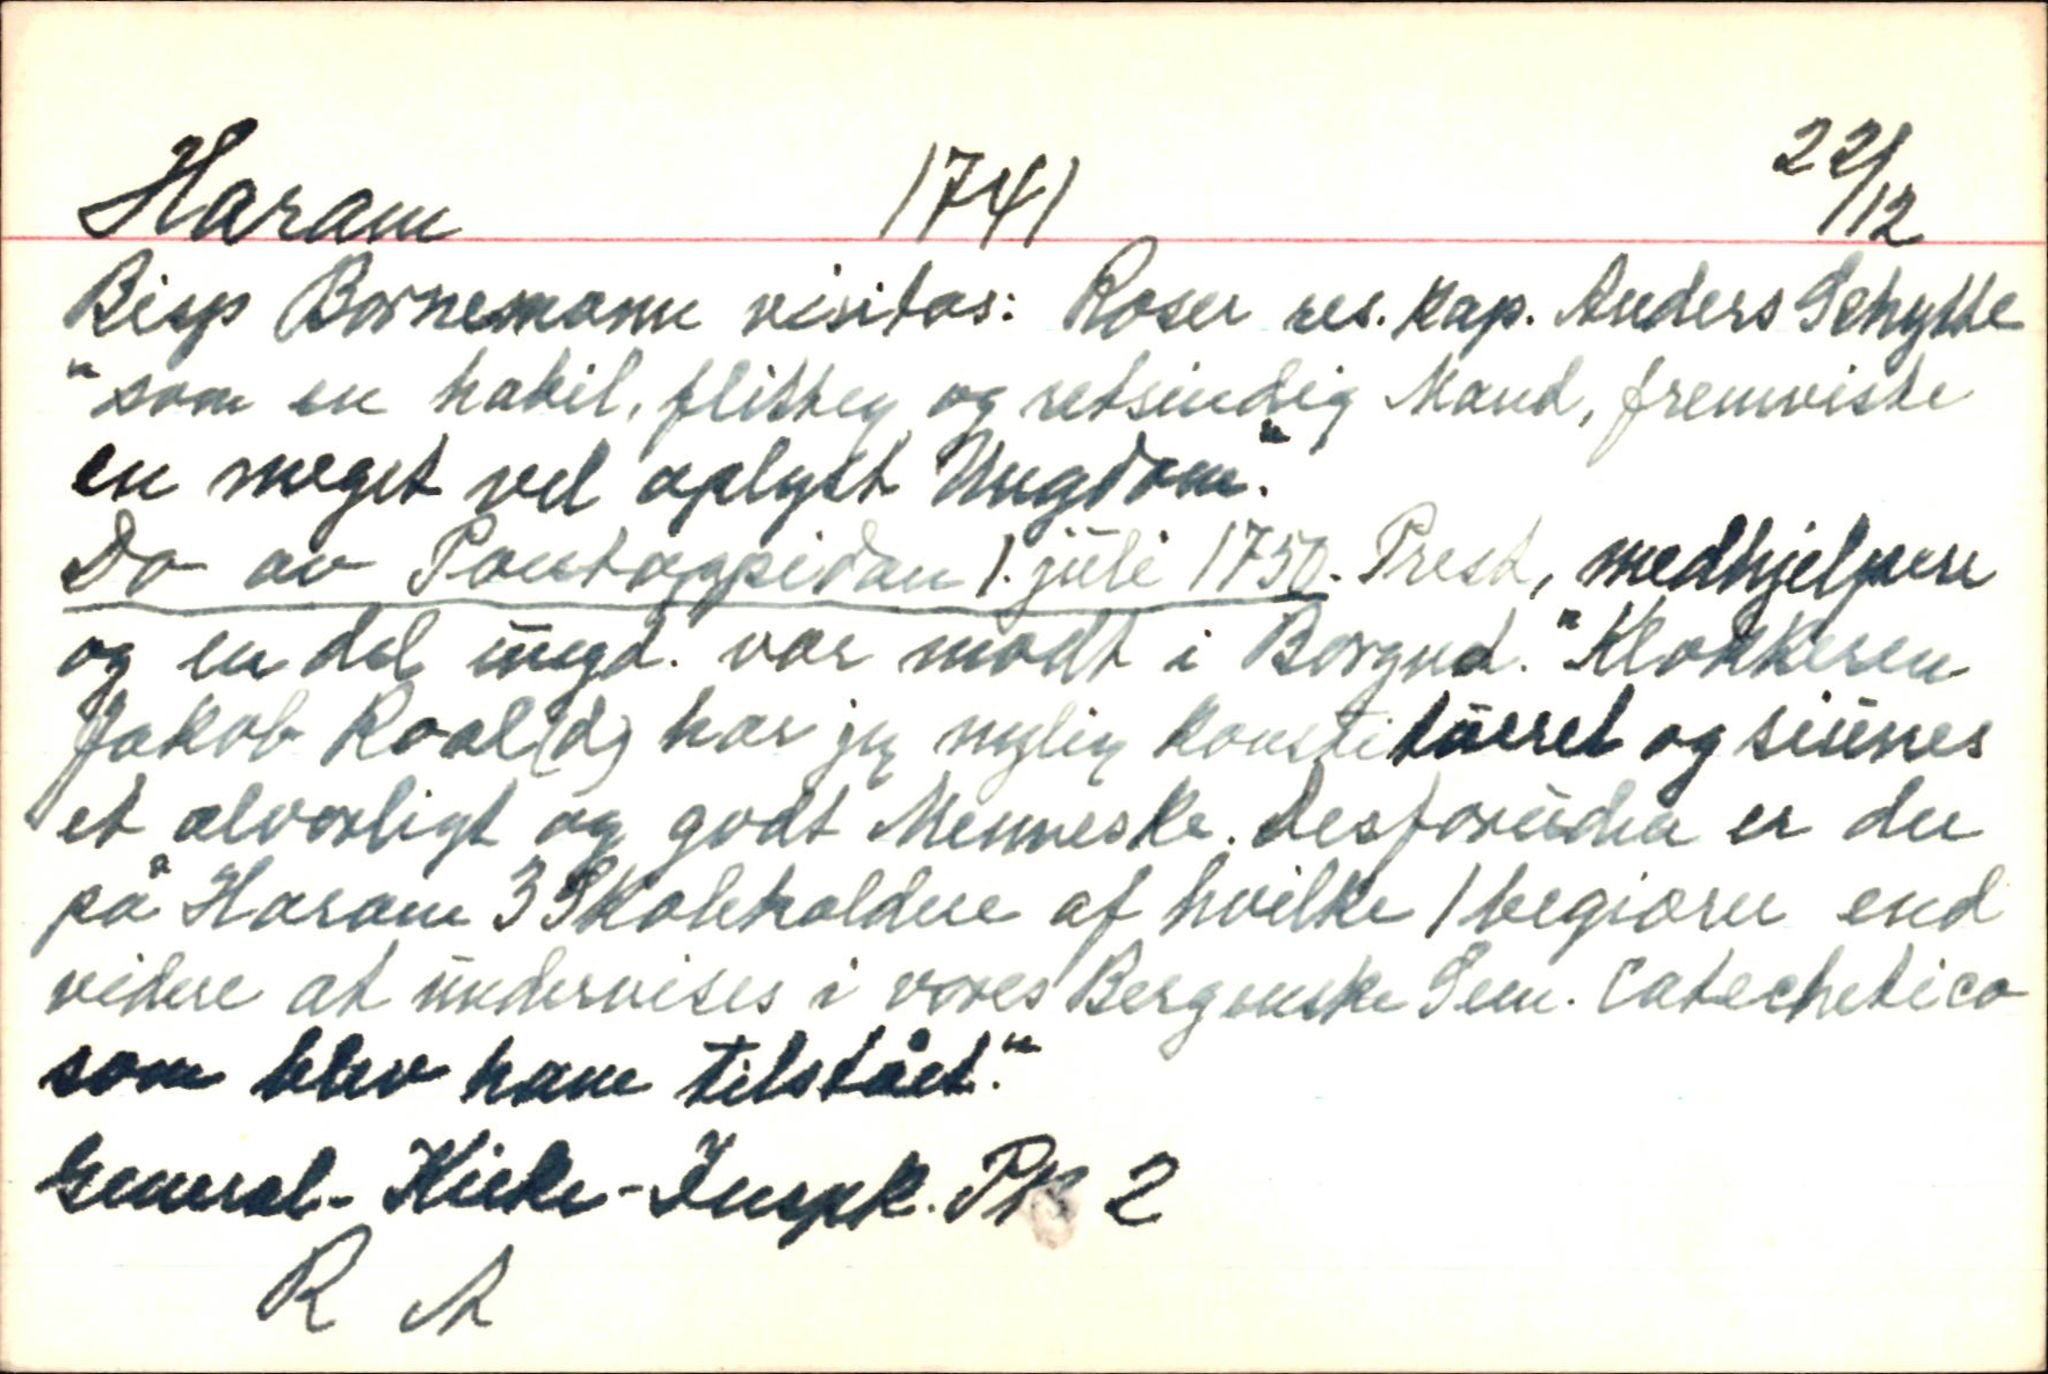 Haram 1741 22/12
Bisp Bornemann visitas: Roser res. kap. Anders Schytte
"som en habil, flittig og retsindig Mand, fremviste
en meget vel oplyst Ungdom."
Do av Pontoppidan 1. juli 1750. Prest, medhjelpere
og en del ungd. var mødt i Borgund. "Klokkeren
Jakob Roal(d) har jeg nylig konstitueret og siunes
et alvorligt og godt Menneske. Desforuden er der
på Haram 3 Skoleholdere af hvilke 1 begiærer end
videre at undervises i vores Bergenske Sem. Catechetico
som blev ham tilstået."
General-Kirke-Inspk. Pk 2
R A